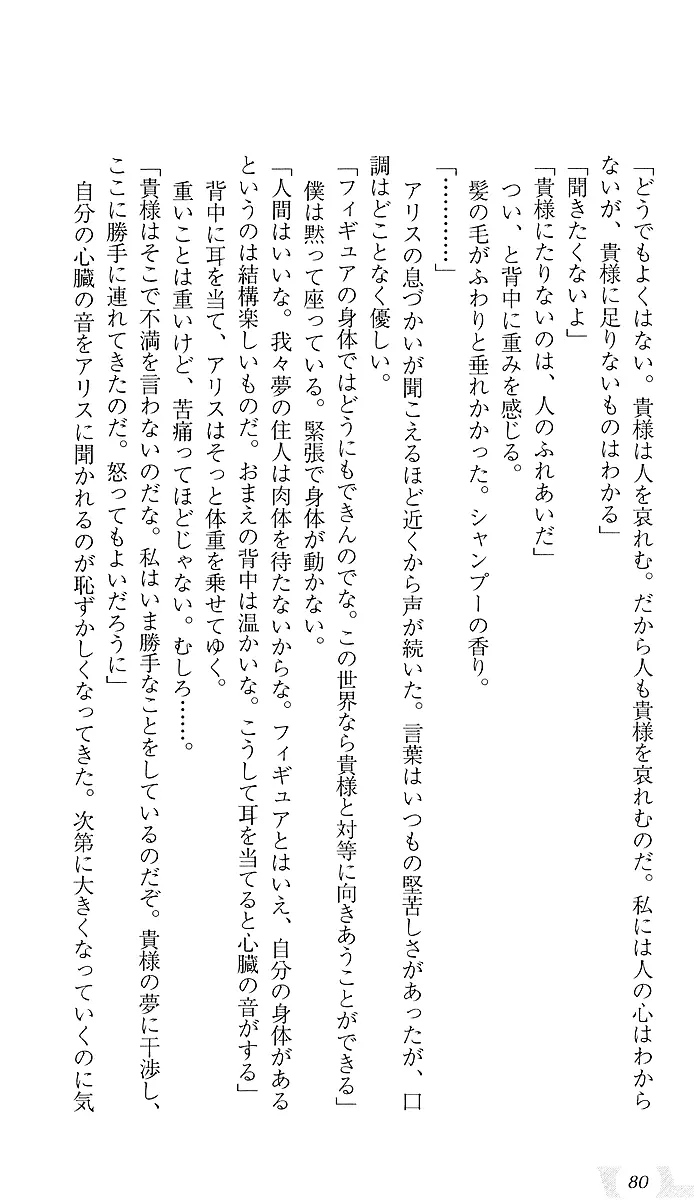 「どうでもよくはない。貴様は人を哀れむ。だから人も貴様を哀れむのだ。私には人の心はわから
ないが、貴様に足りないものはわかる」
「聞きたくないよ」
「貴様にたりないのは、人のふれあいだ」
つい、と背中に重みを感じる。
髪の毛がふわりと垂れかかった。シャンプーの香り。
「…………」
アリスの息づかいが聞こえるほど近くから声が続いた。言葉はいつもの堅苦しさがあったが、口
調はどことなく優しい。
「フィギュアの身体ではどうにもできんのでな。この世界なら貴様と対等に向きあうことができる」
僕は黙って座っている。緊張で身体が動かない。
「人間はいいな。我々夢の住人は肉体を待たないからな。フィギュアとはいえ、自分の身体がある
というのは結構楽しいものだ。おまえの背中は温かいな。こうして耳を当てると心臓の音がする」
背中に耳を当て、アリスはそっと体重を乗せてゆく。
重いことは重いけど、苦痛ってほどじゃない。むしろ……。
「貴様はそこで不満を言わないのだな。私はいま勝手なことをしているのだぞ。貴様の夢に干渉し、
ここに勝手に連れてきたのだ。怒ってもよいだろうに」
自分の心臓の音をアリスに聞かれるのが恥ずかしくなってきた。次第に大きくなっていくのに気
80